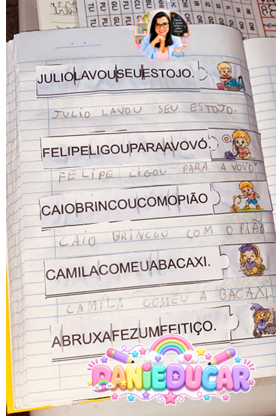 JULIOLAVOUSEUESTOJO.
JULIO LAVOU SEU ESTOJO.
FELIPELIGOUPARAAVOVÓ.
FELIPE LIGOU PARA A VOVÓ
CAIOBRINCOUCOMOPIÃO
CAIO BRINCOU COM O PIÃO
CAMILACOMEUABACAXI.
CAMILA COMEU A BACAXI
ABRUXAFEZUMFEITIÇO.
DANIEDUCAR